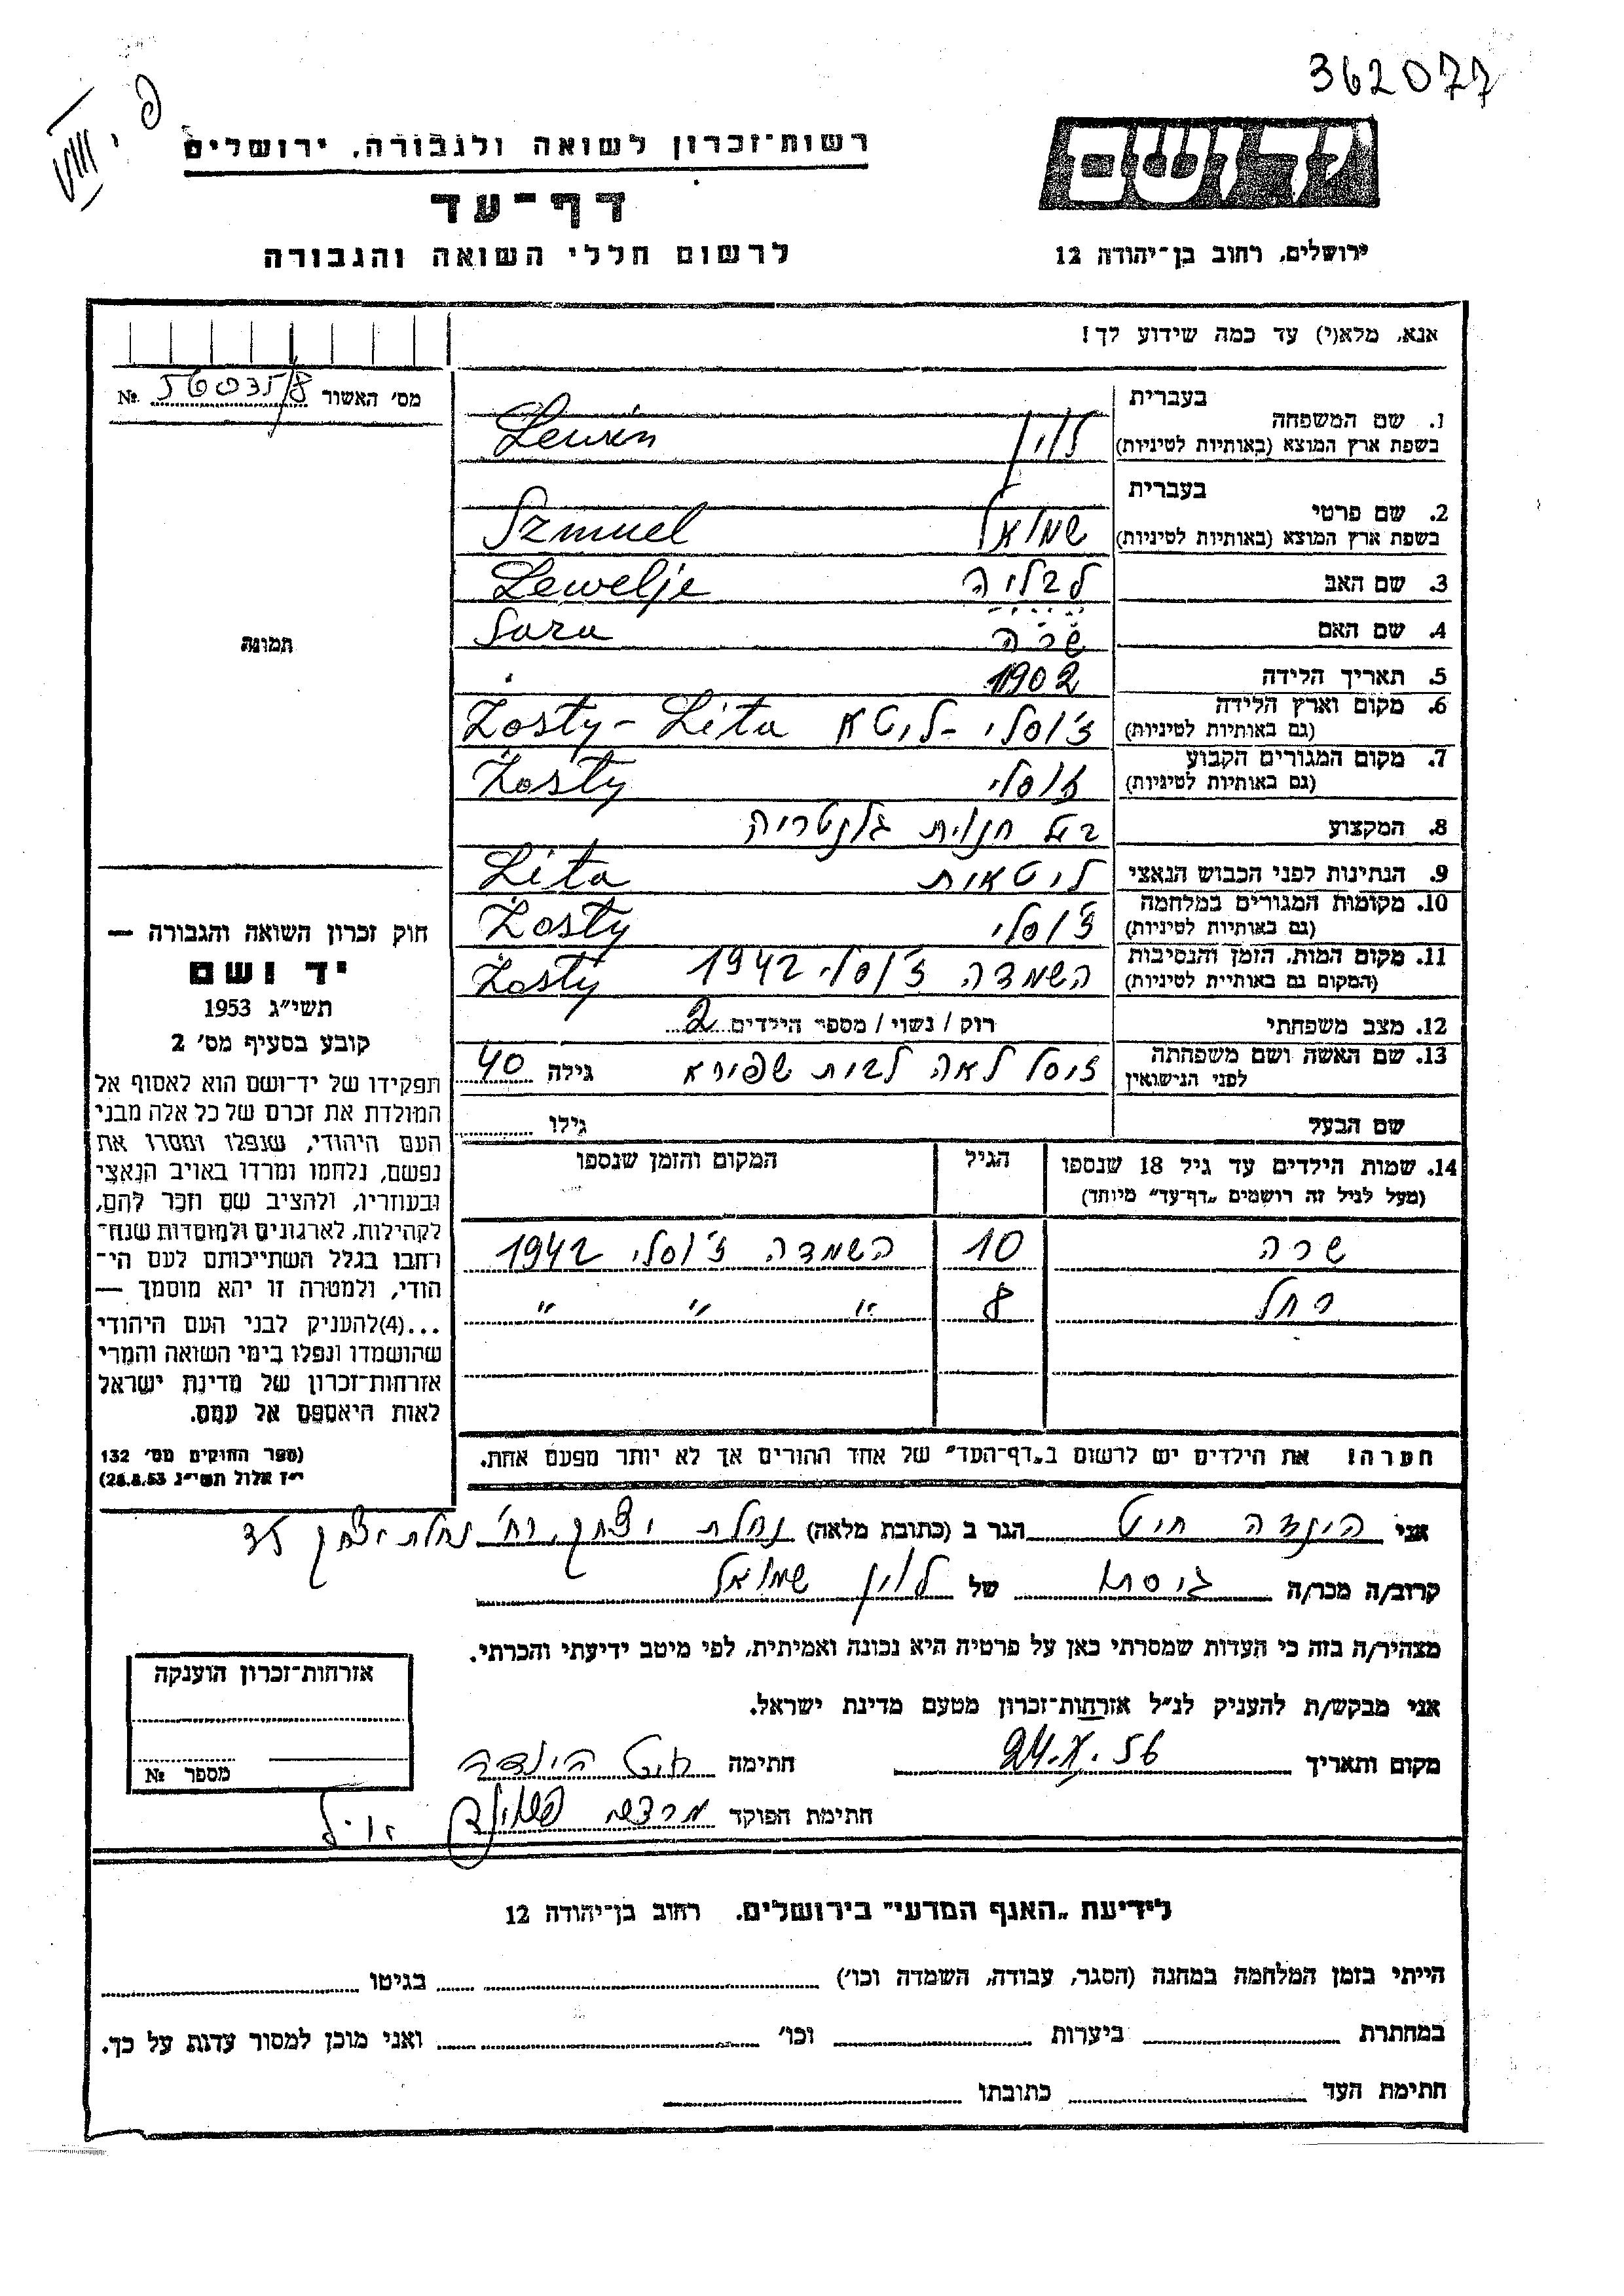 362077
רשות־זכרון לשואה ולגבורה, ירושלים
יד ושם
דף־עד
לרשום חללי השואה והגבורה
ירושלים, רחוב בן־יהודה 12
אנא, מלא(י) עד כמה שידוע לך!
מס׳ האשור 56035/8 №
1. שם המשפחה בעברית לוין
בשפת ארץ המוצא (באותיות לטיניות) Lewin
2. שם פרטי בעברית שמואל
בשפת ארץ המוצא (באותיות לטיניות) Szmuel
3. שם האב לבליה Lewelje
4. שם האם שרה Sara
5. תאריך הלידה 1902
6. מקום וארץ הלידה (גם באותיות לטיניות) ז'וסלי - ליטא Zosty - Lita
7. מקום המגורים הקבוע (גם באותיות לטיניות) זוסלי Zosty
8. המקצוע בעל חנוית גלנטריה
9. הנתינות לפני הכבוש הנאצי ליטאית Lita
10. מקומות המגורים במלחמה (גם באותיות לטיניות) ז'וסלי Zosty
11. מקום המות, הזמן והנסיבות (המקום גם באותיית לטיניות) השמדה ז'וסלי 1942 Zosty
12. מצב משפחתי רוק / נשוי / מספר הילדים 2
13. שם האשה ושם משפחתה לפני הנישואין זיסל לאה לבית שפירא גילה 40
שם הבעל גילו
14. שמות הילדים עד גיל 18 שנספו הגיל המקום והזמן שנספו
(מעל לגיל זה רושמים „דף־עד" מיוחד)
שרה 10 השמדה ז'וסלי 1942
רחל 8 " " "
הערה! את הילדים יש לרשום ב„דף־העד" של אחד ההורים אך לא יותר מפעם אחת.
תמונה
חוק זכרון השואה והגבורה —
יד ושם
תשי״ג 1953
קובע בסעיף מס׳ 2
תפקידו של יד־ושם הוא לאסוף אל
המולדת את זכרם של כל אלה מבני
העם היהודי, שנפלו ומסרו את
נפשם, נלחמו ומרדו באויב הנאצי
ובעוזריו, ולהציב שם וזכר להם,
לקהילות, לארגונים ולמוסדות שנח־
רחבו בגלל השתייכותם לעם הי־
הודי, ולמטרה זו יהא מוסמך —
...(4)להעניק לבני העם היהודי
שהושמדו ונפלו בימי השואה והמרי
אזרחות־זכרון של מדינת ישראל
לאות היאספם אל עמם.
(ספר החוקים מס׳ 132
י״ז אלול תשי״ג 28.8.53)
אני הינדה חיט הגר ב (כתובת מלאה) נחלת יצחק רח' נחלת יצחק
קרוב/ה מכר/ה גיסתו של לוין שמואל
מצהיר/ה בזה כי העדות שמסרתי כאן על פרטיה היא נכונה ואמיתית, לפי מיטב ידיעתי והכרתי.
אני מבקש/ת להעניק לנ״ל אזרחות־זכרון מטעם מדינת ישראל.
מקום ותאריך 24.X.56 חתימה חיט הינדה
חתימת הפוקד
אזרחות־זכרון הוענקה
מספר №
לידיעת „האגף המדעי" בירושלים. רחוב בן־יהודה 12
הייתי בזמן המלחמה במחנה (הסגר, עבודה, השמדה וכו׳) בגיטו
במחתרת ביערות וכו׳ ואני מוכן למסור עדות על כך.
חתימת העד כתובתו